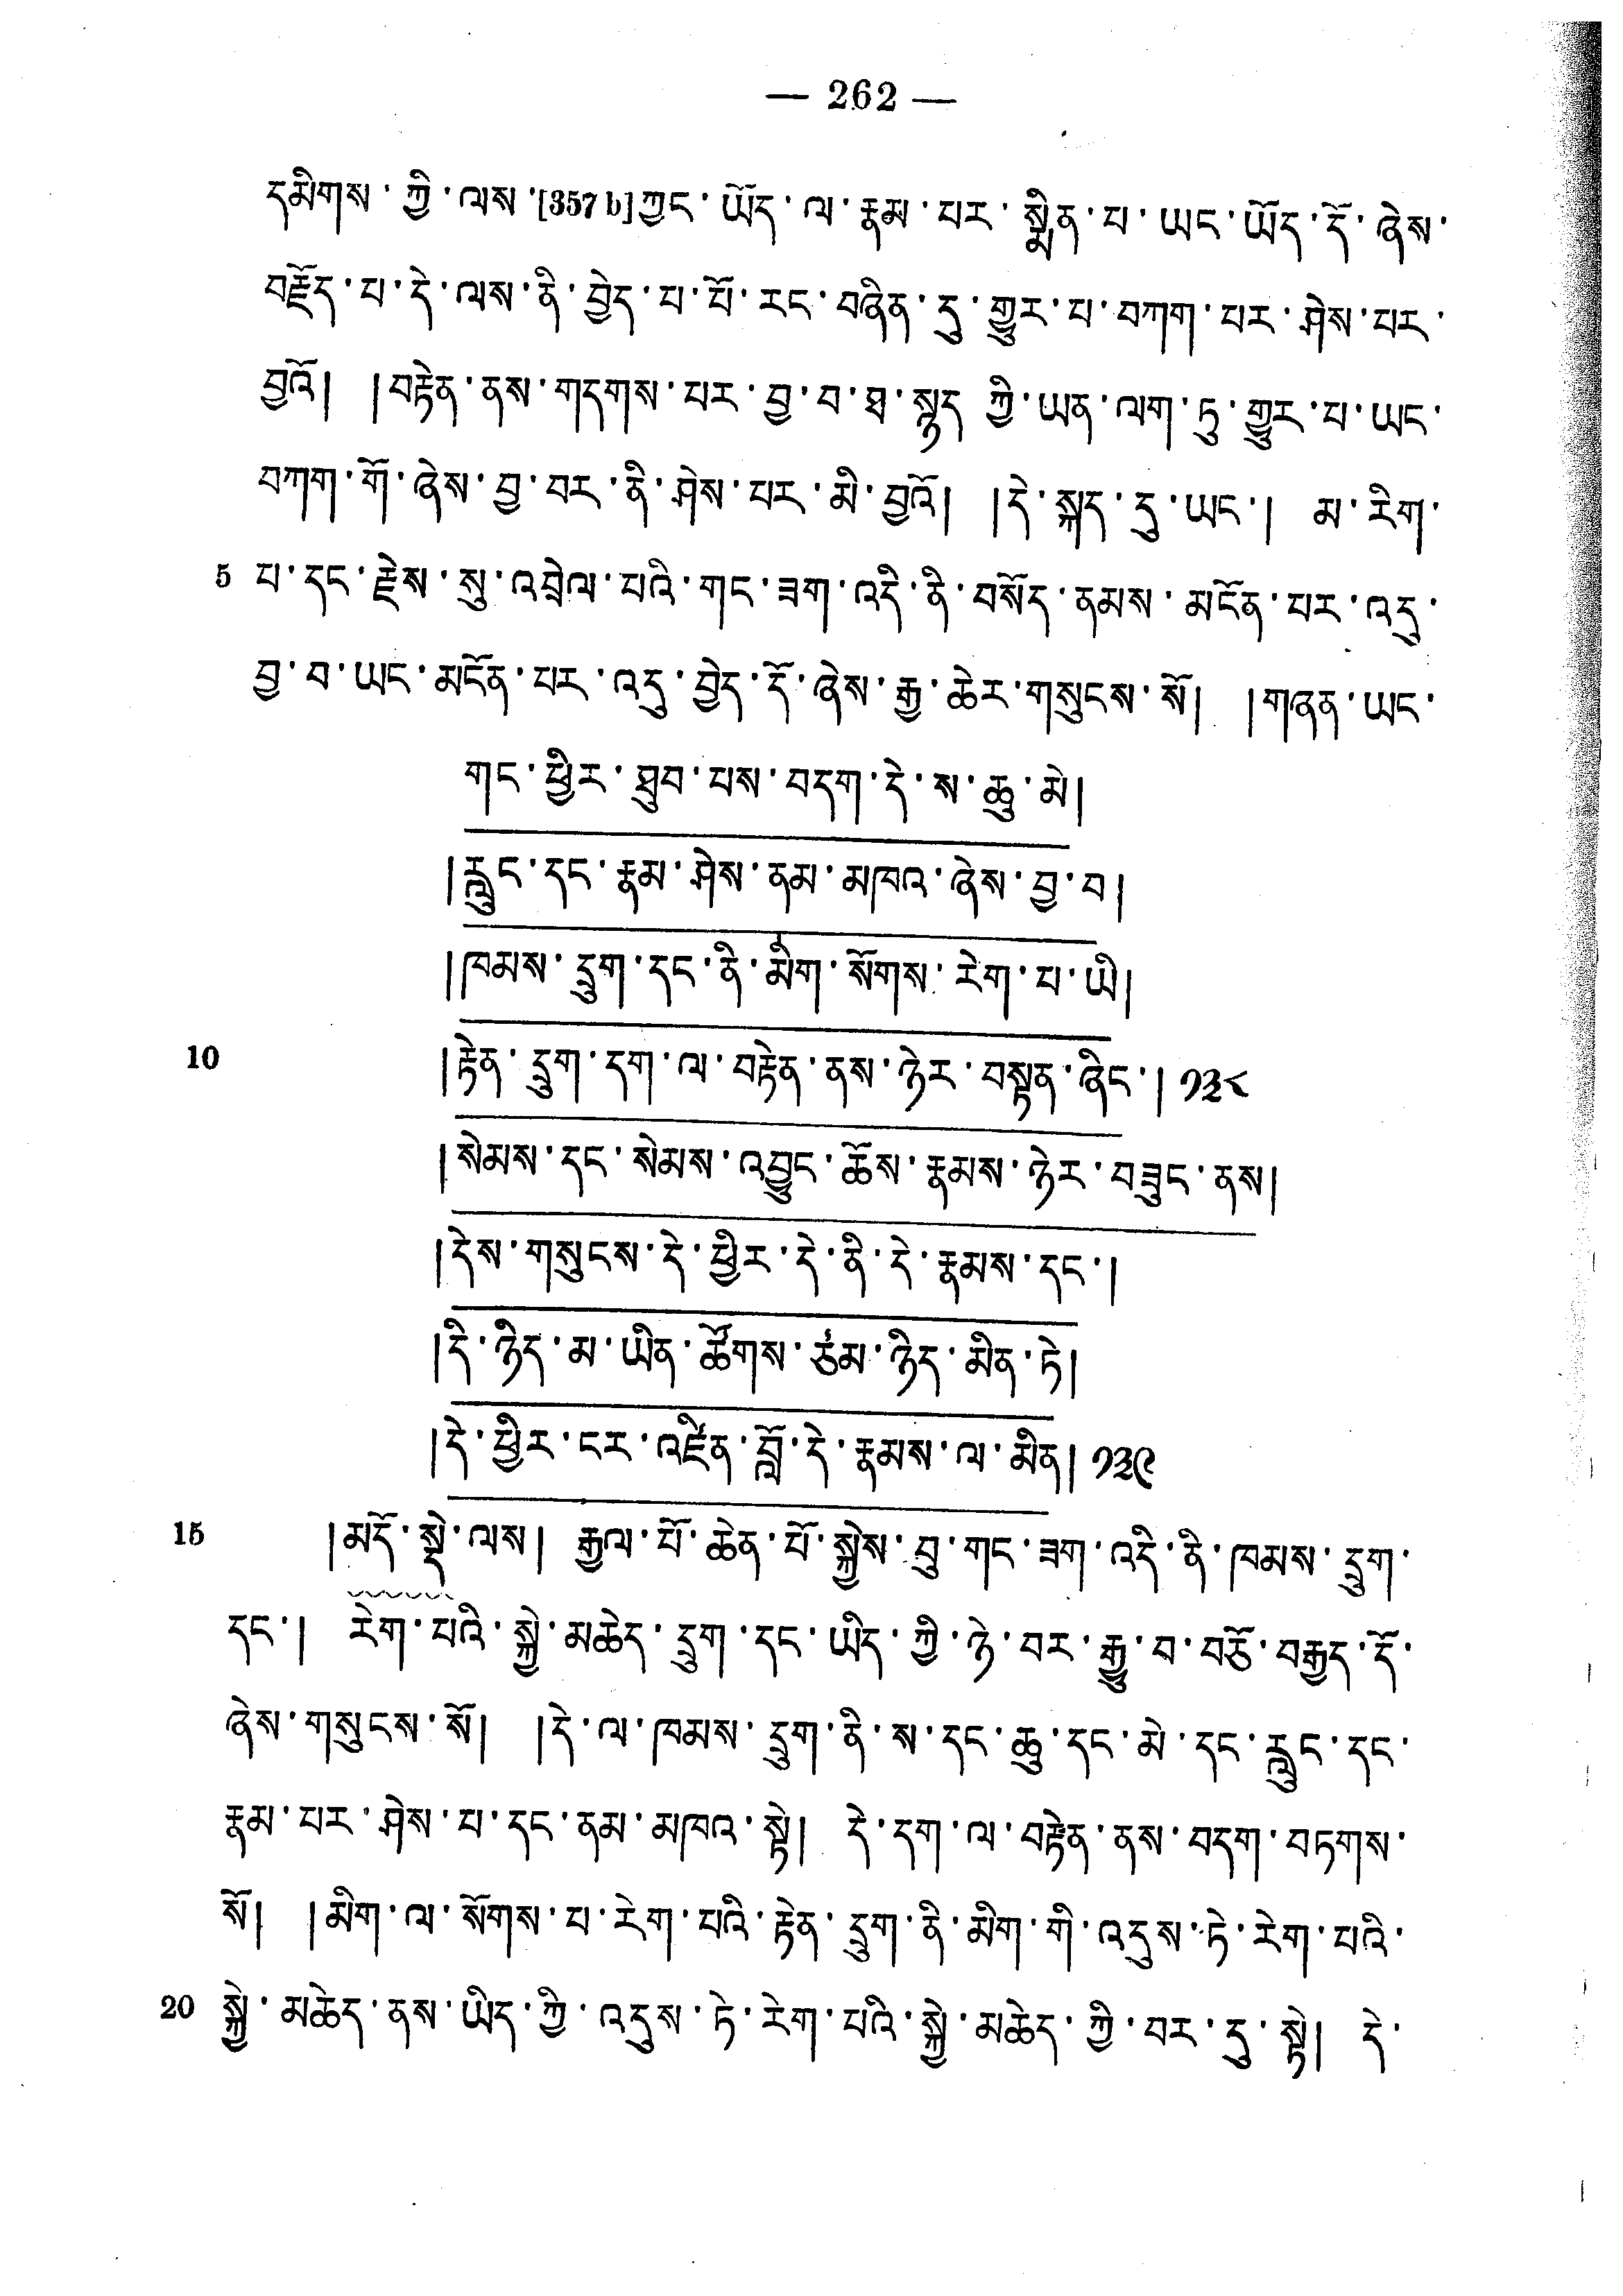 — 262 —
དམིགས་ཀྱི་ལས་[357 b]ཀྱང་ཡོད་ལ་རྣམ་པར་སྨིན་པ་ཡང་ཡོད་དོ་ཞེས་
བརྗོད་པ་དེ་ལས་ནི་བྱེད་པ་པོ་རང་བཞིན་དུ་གྱུར་པ་བཀག་པར་ཤེས་པར་
བྱའོ། །བརྟེན་ནས་གདགས་པར་བྱ་བ་ཐ་སྙད ཀྱི་ཡན་ལག་ཏུ་གྱུར་པ་ཡང་
བཀག་གོ་ཞེས་བྱ་བར་ནི་ཤེས་པར་མི་བྱའོ། །དེ་སྐད་དུ་ཡང་། མ་རིག་
5 པ་དང་རྗེས་སུ་འབྲེལ་པའི་གང་ཟག་འདི་ནི་བསོད་ནམས་མངོན་པར་འདུ་
བྱ་བ་ཡང་མངོན་པར་འདུ་བྱེད་དོ་ཞེས་རྒྱ་ཆེར་གསུངས་སོ། །གཞན་ཡང་
གང་ཕྱིར་ཐུབ་པས་བདག་དེ་ས་ཆུ་མེ།
།རླུང་དང་རྣམ་ཤེས་ནམ་མཁའ་ཞེས་བྱ་བ།
།ཁམས་དྲུག་དང་ནི་མིག་སོགས་རེག་པ་ཡི།
10 །རྟེན་དྲུག་དག་ལ་བརྟེན་ནས་ཉེར་བསྟན་ཞིང་། ༡༣༨
།སེམས་དང་སེམས་འབྱུང་ཆོས་རྣམས་ཉེར་བཟུང་ནས།
།དེས་གསུངས་དེ་ཕྱིར་དེ་ནི་དེ་རྣམས་དང་།
།དེ་ཉིད་མ་ཡིན་ཚོགས་ཙམ་ཉིད་མིན་ཏེ།
།དེ་ཕྱིར་ངར་འཛིན་བློ་དེ་རྣམས་ལ་མིན། ༡༣༩
15 །མདོ་སྡེ་ལས། རྒྱལ་པོ་ཆེན་པོ་སྐྱེས་བུ་གང་ཟག་འདི་ནི་ཁམས་དྲུག་
དང་། རེག་པའི་སྐྱེ་མཆེད་དྲུག་དང་ཡིད་ཀྱི་ཉེ་བར་རྒྱུ་བ་བཅོ་བརྒྱད་དོ་
ཞེས་གསུངས་སོ། །དེ་ལ་ཁམས་དྲུག་ནི་ས་དང་ཆུ་དང་མེ་དང་རླུང་དང་
རྣམ་པར་ཤེས་པ་དང་ནམ་མཁའ་སྟེ། དེ་དག་ལ་བརྟེན་ནས་བདག་བཏགས་
སོ། །མིག་ལ་སོགས་པ་རེག་པའི་རྟེན་དྲུག་ནི་མིག་གི་འདུས་ཏེ་རེག་པའི་
20 སྐྱེ་མཆེད་ནས་ཡིད་ཀྱི་འདུས་ཏེ་རེག་པའི་སྐྱེ་མཆེད་ཀྱི་བར་དུ་སྟེ། དེ་